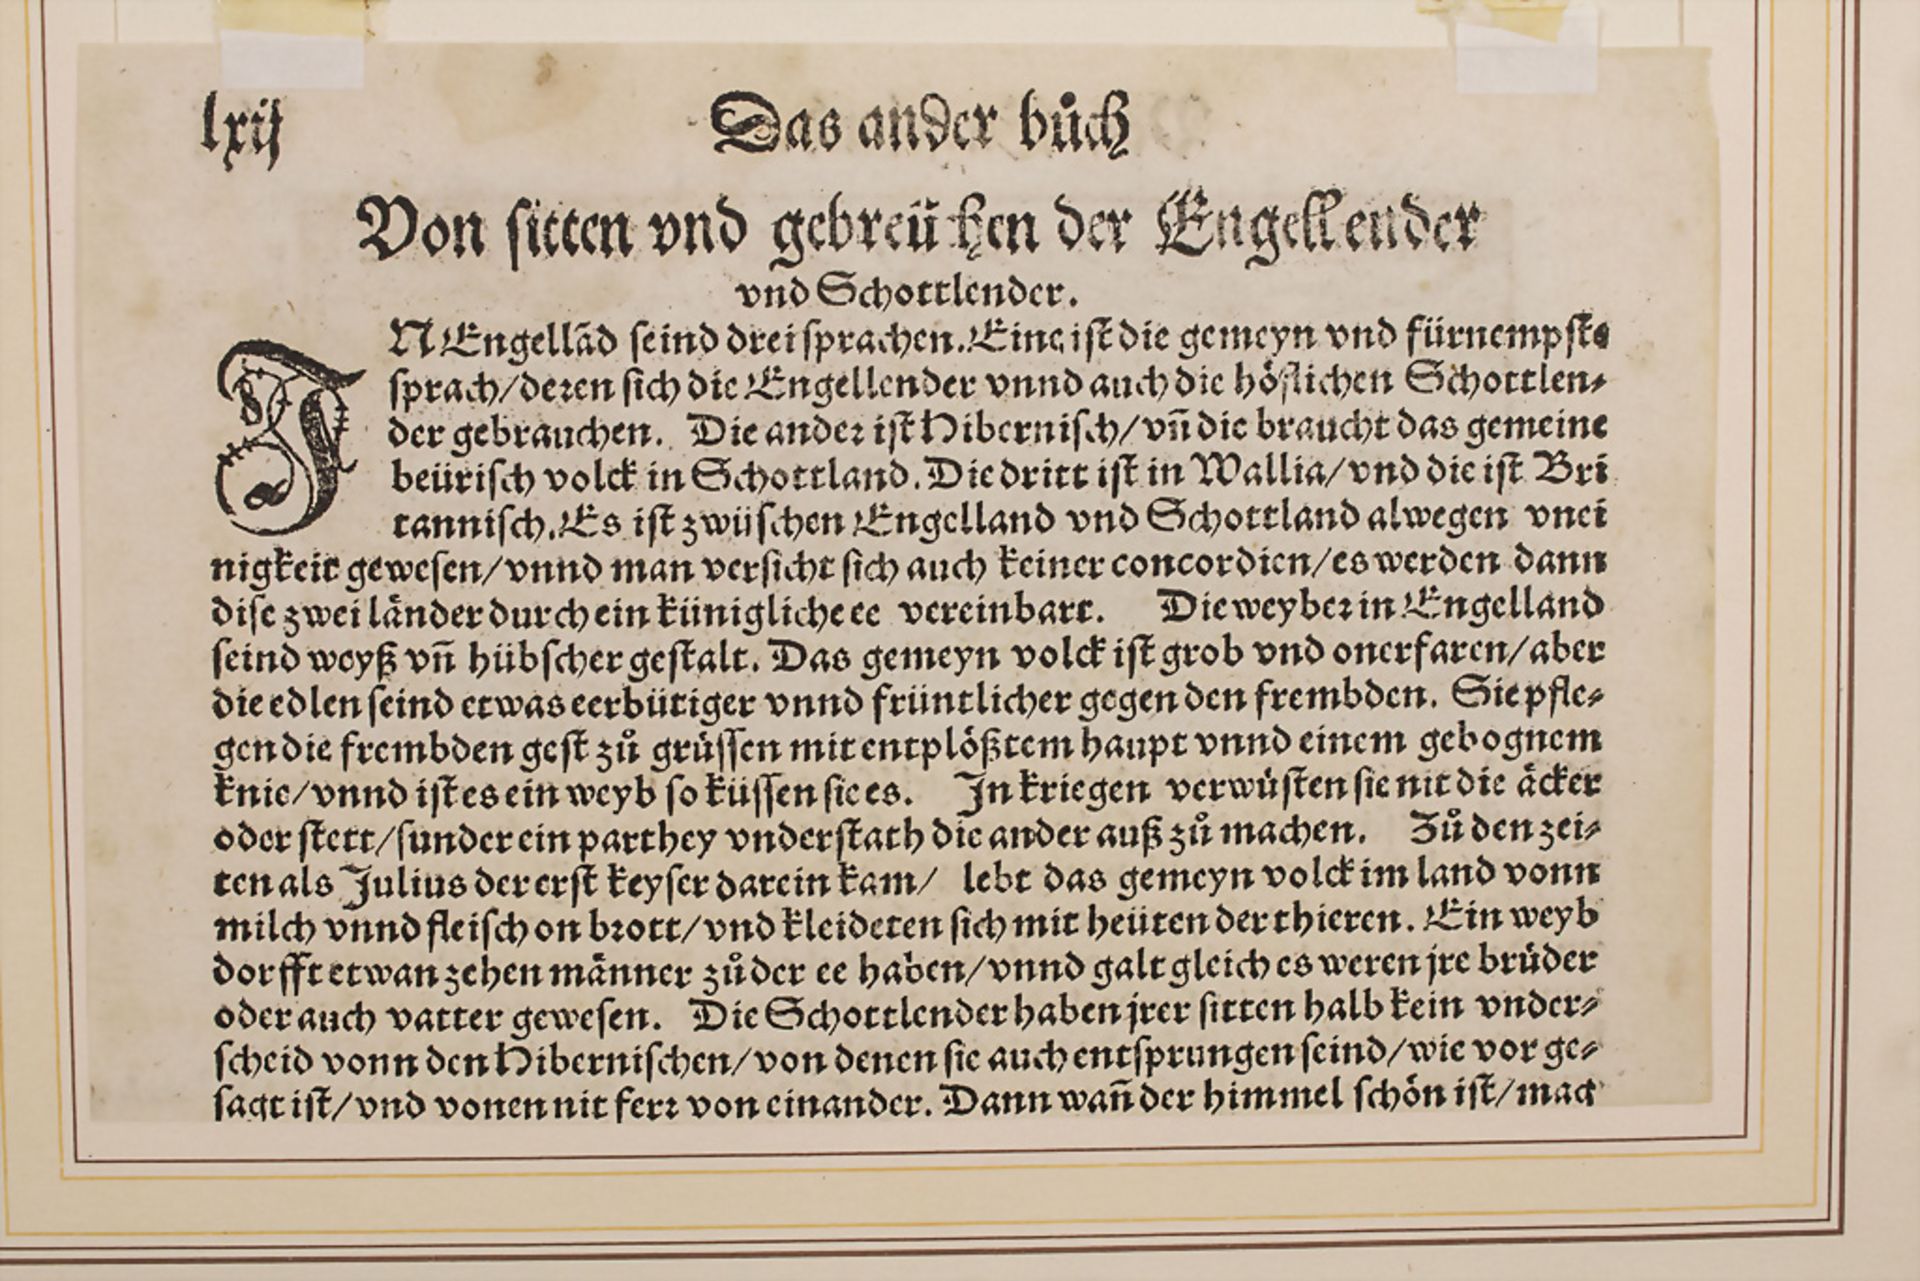 lxij
Das ander bůch
Von sitten vnd gebreüchen der Engellender
vnd Schottlender.
IN Engellãd seind drei sprachen. Eine ist die gemeyn vnd fürnempste
sprach/deren sich die Engellender vnnd auch die höflichen Schottlen⸗
der gebrauchen. Die ander ist Hibernisch/vñ die braucht das gemeine
beürisch volck in Schottland. Die dritt ist in Wallia/vnd die ist Bri
tannisch. Es ist zwüschen Engelland vnd Schottland alwegen vnei
nigkeit gewesen/vnnd man versicht sich auch keiner concordien/es werden dann
dise zwei länder durch ein künigliche ee vereinbart. Die weyber in Engelland
seind weyß vñ hübscher gestalt. Das gemeyn volck ist grob vnd onerfaren/aber
die edlen seind etwas eerbütiger vnnd früntlicher gegen den frembden. Sie pfle⸗
gen die frembden gest zů grüssen mit entplößtem haupt vnnd einem gebognem
knie/vnnd ist es ein weyb so küssen sie es. In kriegen verwüsten sie nit die äcker
oder stett/sunder ein parthey vnderstath die ander auß zů machen. Zů den zei⸗
ten als Julius der erst keyser darein kam/ lebt das gemeyn volck im land vonn
milch vnnd fleisch on brott/vnd kleideten sich mit heüten der thieren. Ein weyb
dorfft etwan zehen männer zů der ee haben/vnnd galt gleich es weren jre brüder
oder auch vatter gewesen. Die Schottlender haben jrer sitten halb kein vnder⸗
scheid vonn den Hibernischen/von denen sie auch entsprungen seind/wie vor ge⸗
sagt ist/vnd vonen nit ferr von einander. Dann wañ der himmel schön ist/mag